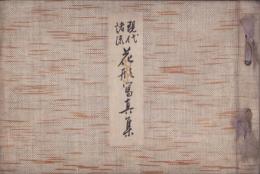 現代
諸流
花形寫真集